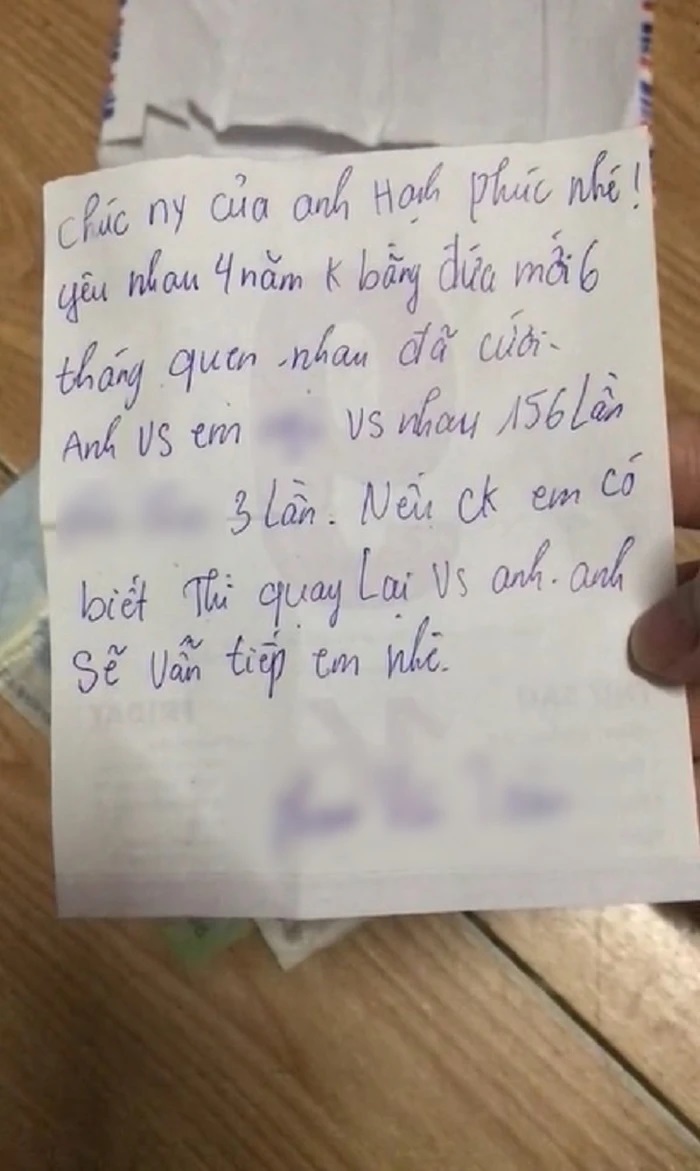 Chúc ny của anh Hạnh phúc nhé!
yêu nhau 4 năm k bằng đứa mới 6
tháng quen nhau đã cưới.
Anh vs em vs nhau 156 Lần
3 Lần. Nếu ck em có
biết Thì quay Lại vs anh. anh
Sẽ vẫn tiếp em nhé.
THỨ SÁU
FRIDAY